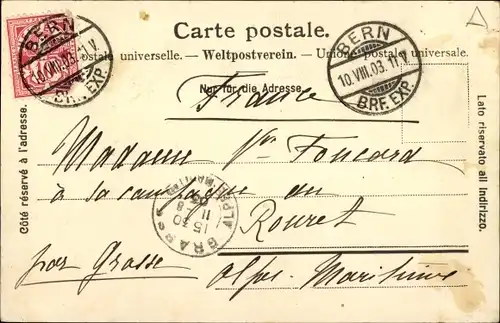 Carte postale.
Union postale universelle. – Weltpostverein. – Unione postale universale.
Nur für die Adresse.
BERN
10.VIII.03.11 V.
BRF. EXP.
BERN
10.VIII.03.11 V.
BRF. EXP.
France
Madame Vve Foucard
à sa campagne du
Rouret
par Grasse
Alpes-Maritimes
GRASSE
15 30
11
8
03
ALPES MARITMES
Côté réservé à l'adresse.
Lato riservato all Indirizzo.